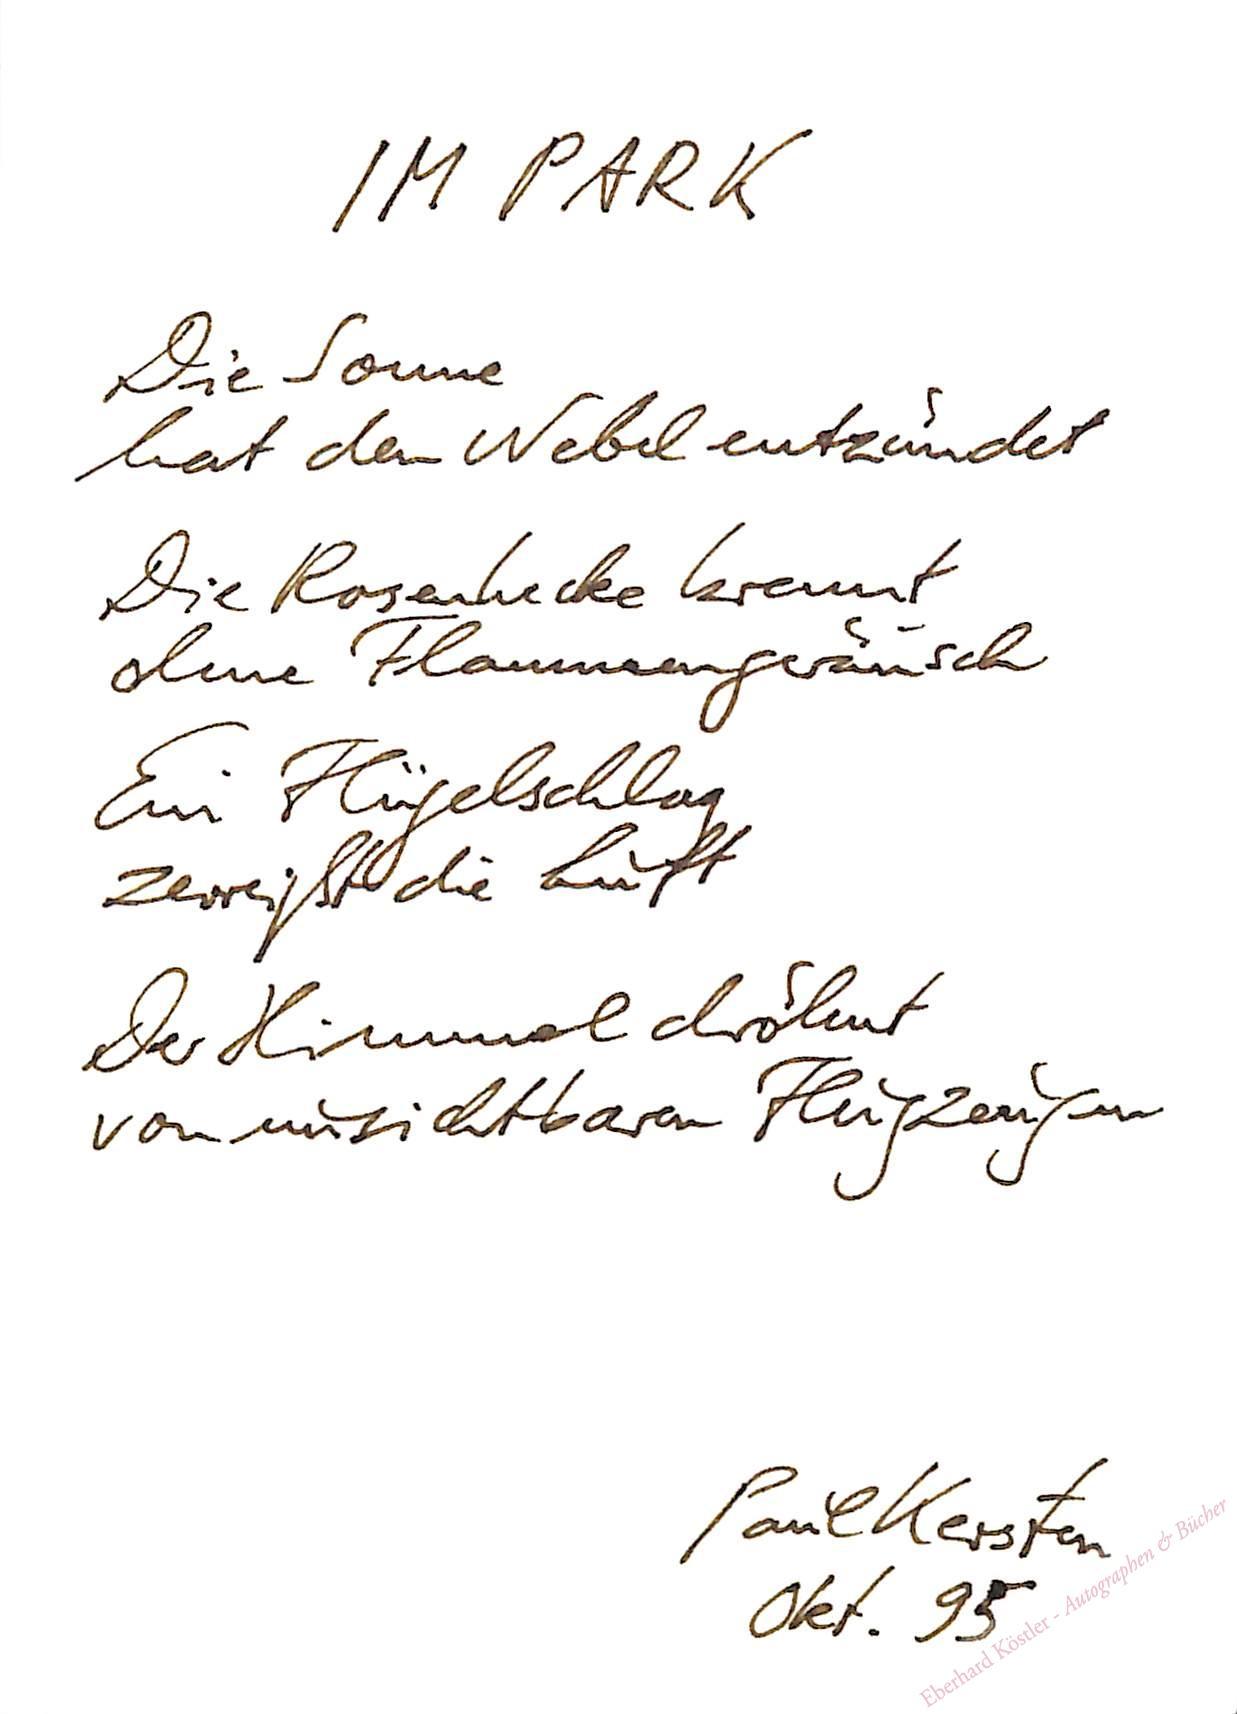 IM PARK
Die Sonne
hat den Nebel entzündet
Die Rosenhecke brennt
ohne Flammengeräusch
Ein Flügelschlag
zerreißt die Luft
Der Himmel dröhnt
von unsichtbaren Flugzeugen
Paul Kersten
Okt. 95
Eberhard Köstler - Autographen & Bücher